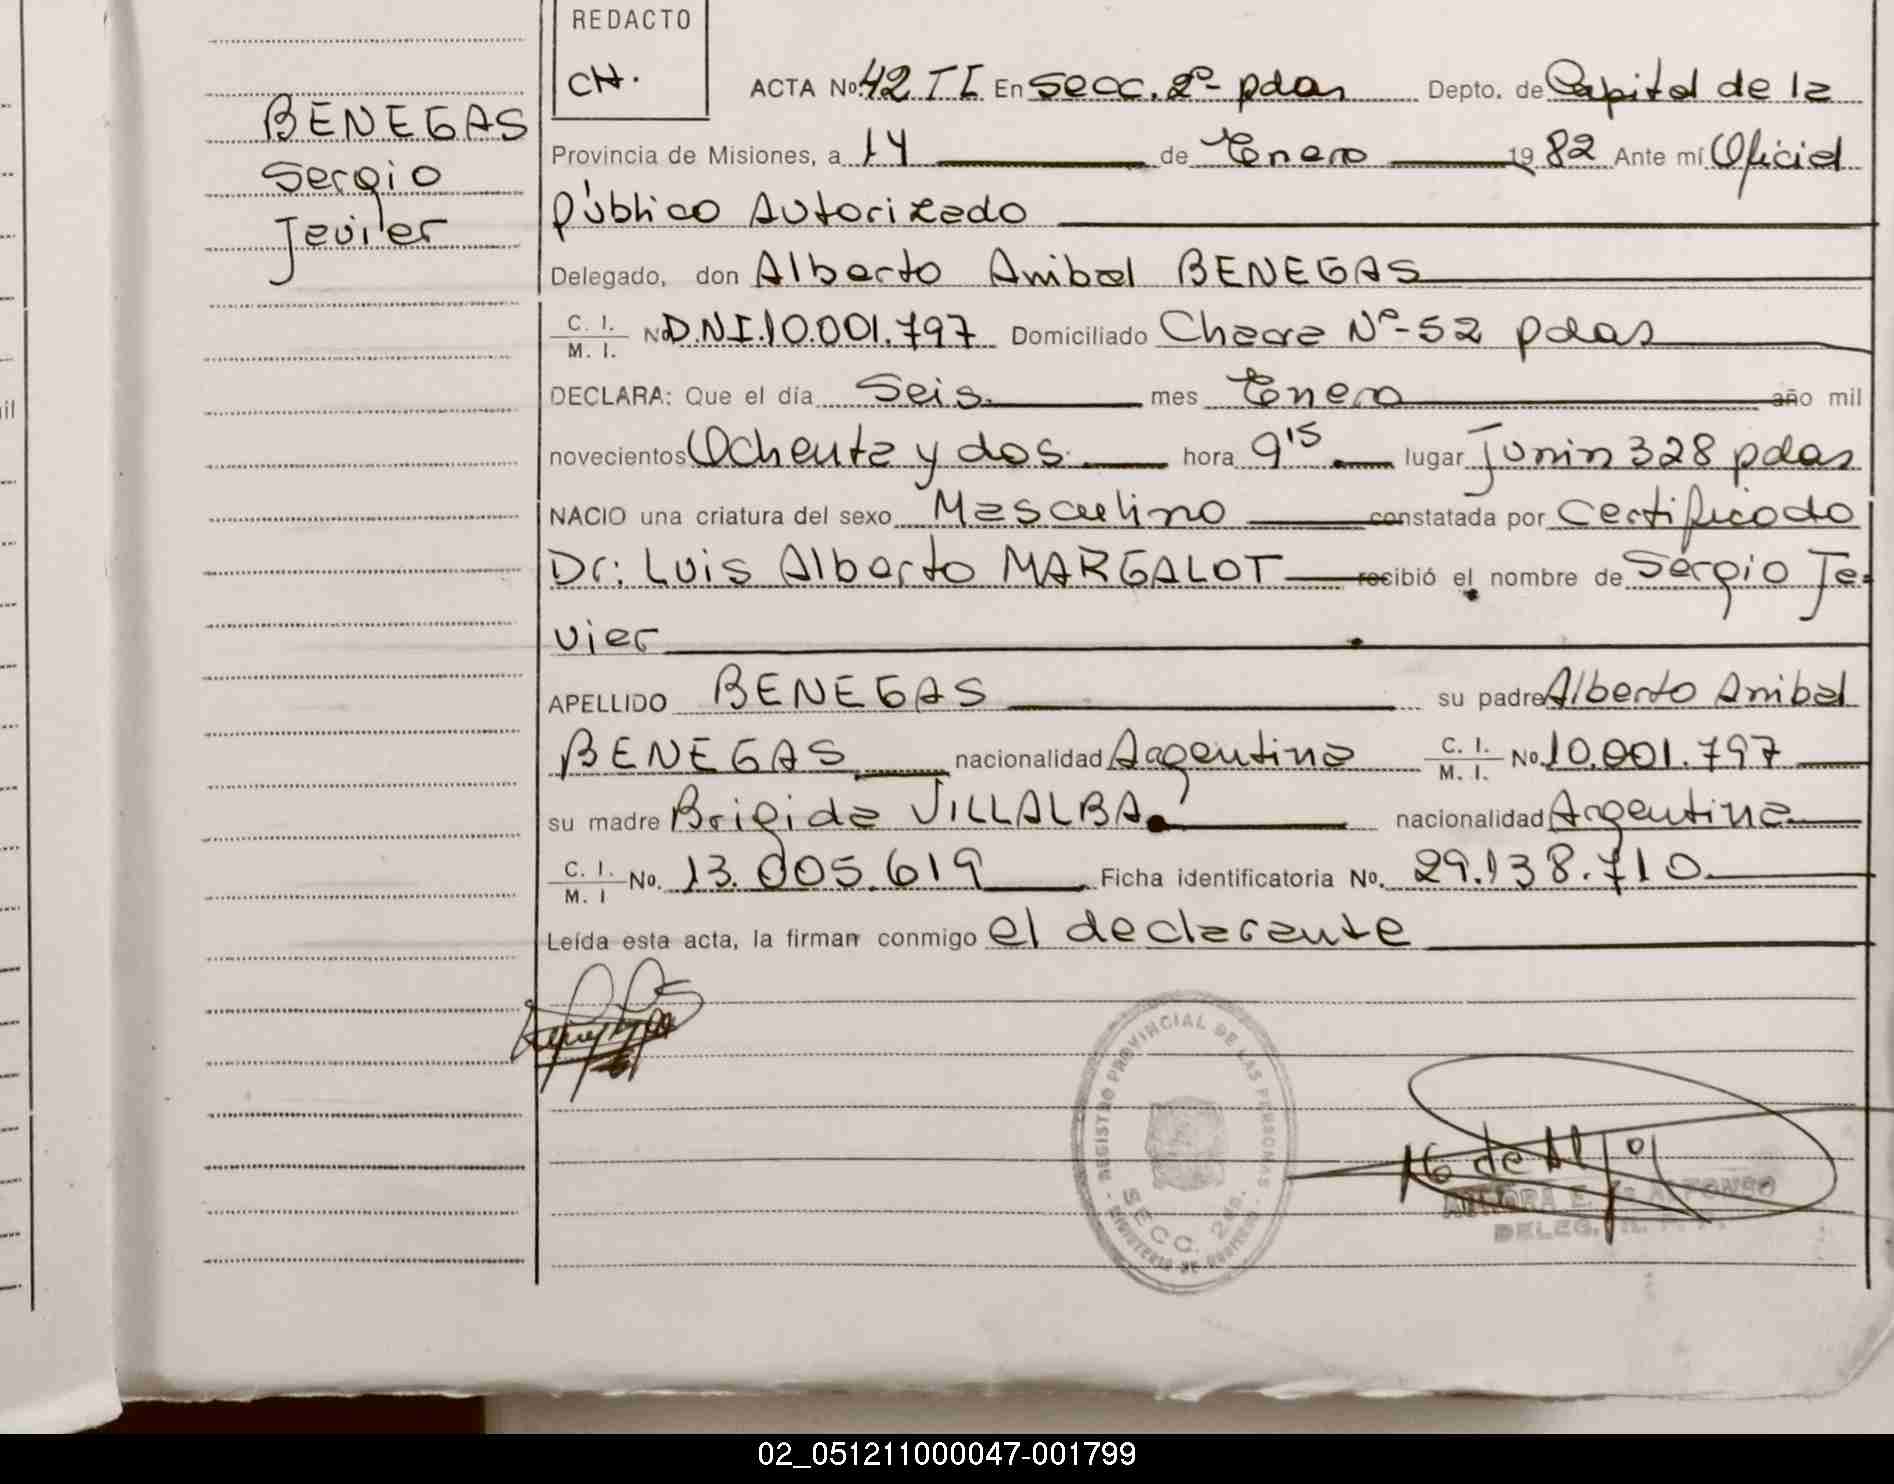 REDACTO
CH.
BENEGAS
Sergio
Javier
ACTA No. 42 TI En Secc. 2º pdas Depto. de Capital de la
Provincia de Misiones, a 14 de Enero 1982 Ante mí Oficial
Público Autorizado
Delegado, don Alberto Anibal BENEGAS
C. I. / M. I. No D.N.I. 10.001.797 Domiciliado Chacra Nº-52 pdas
DECLARA: Que el día Seis mes Enero año mil
novecientos Ochenta y dos hora 9 15 lugar Junin 328 pdas
NACIO una criatura del sexo Masculino constatada por Certificado
Dr: Luis Alberto MARGALOT recibió el nombre de Sergio Ja-
vier
APELLIDO BENEGAS su padre Alberto Anibal
BENEGAS nacionalidad Argentina C. I. / M. I. No. 10.001.797
su madre Brigida VILLALBA. nacionalidad Argentina
C. I. / M. I No. 13.005.619 Ficha identificatoria No. 29.138.710
Leída esta acta, la firman conmigo el declarante
REGISTRO PROVINCIAL DE LAS PERSONAS
SECC. 2da.
MINISTERIO DE GOBIERNO
DELEG.
02_051211000047-001799